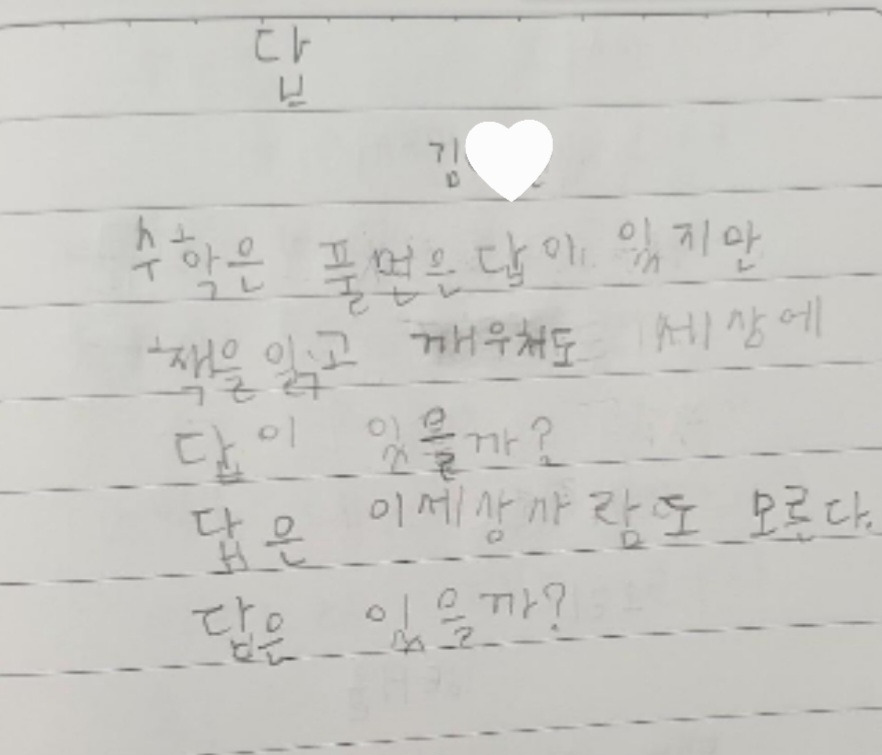 답
김
수학은 풀면은 답이 있지만
책을 읽고 깨우쳐도 세상에
답이 있을까?
답은 이세상사람도 모른다.
답은 있을까?